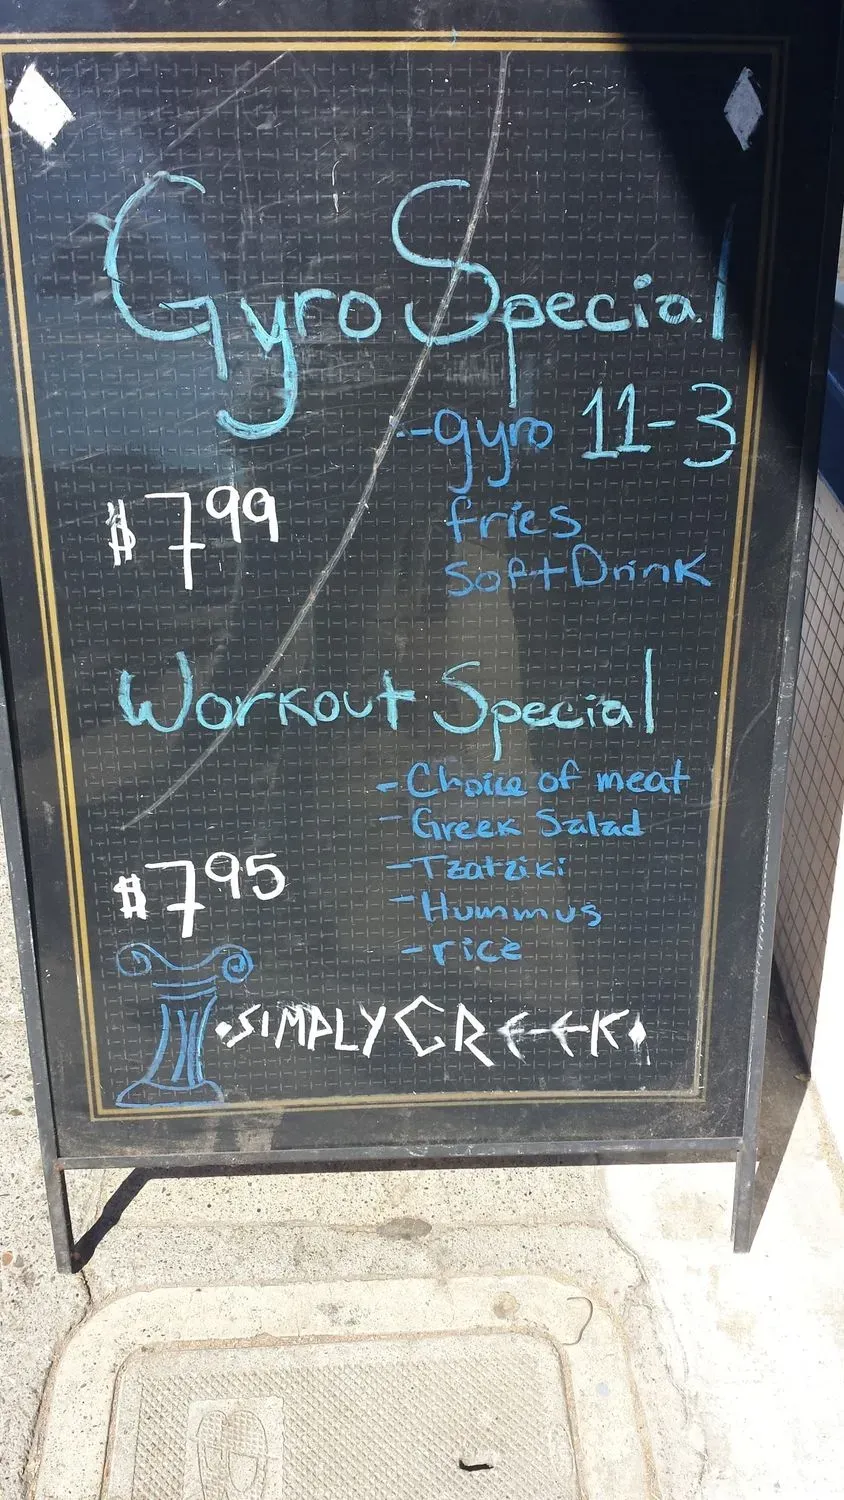 Gyro Special
-gyro 11-3
$7.99
fries
Soft Drink
Workout Special
-Choice of meat
-Greek Salad
-Tzatziki
$7.95
-Hummus
-rice
SIMPLY GREEK